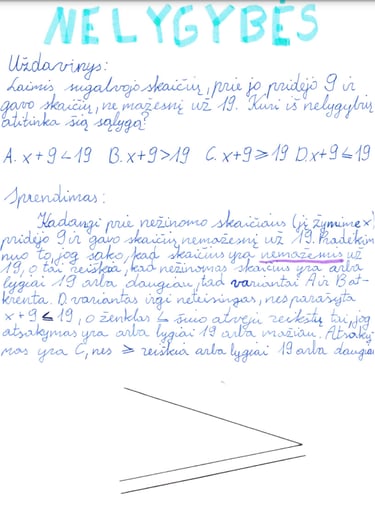 NELYGYBĖS
Uždavinys:
Laimis sugalvojo skaičių, prie jo pridėjo 9 ir
gavo skaičių, ne mažesnį už 19. Kuri iš nelygybių
atitinka šią sąlygą?
A. x+9<19 B. x+9>19 C. x+9⩾19 D. x+9⩽19
Sprendimas:
Kadangi prie nežinomo skaičiaus (jį žymime x)
pridėjo 9 ir gavo skaičių nemažesnį už 19. Pradėkim
nuo to, jog sako, kad skaičius yra nemažesnis už
19, o tai reiškia, kad nežinomas skaičius yra arba
lygiai 19 arba daugiau, tad variantai A ir B at-
krenta. D. variantas irgi neteisingas, nes parašyta
x+9⩽19, o ženklas ⩽ šiuo atveju reikštų tai, jog
atsakymas yra arba lygiai 19 arba mažiau. Atsaky-
mas yra C, nes ⩾ reiškia arba lygiai 19 arba daugiau